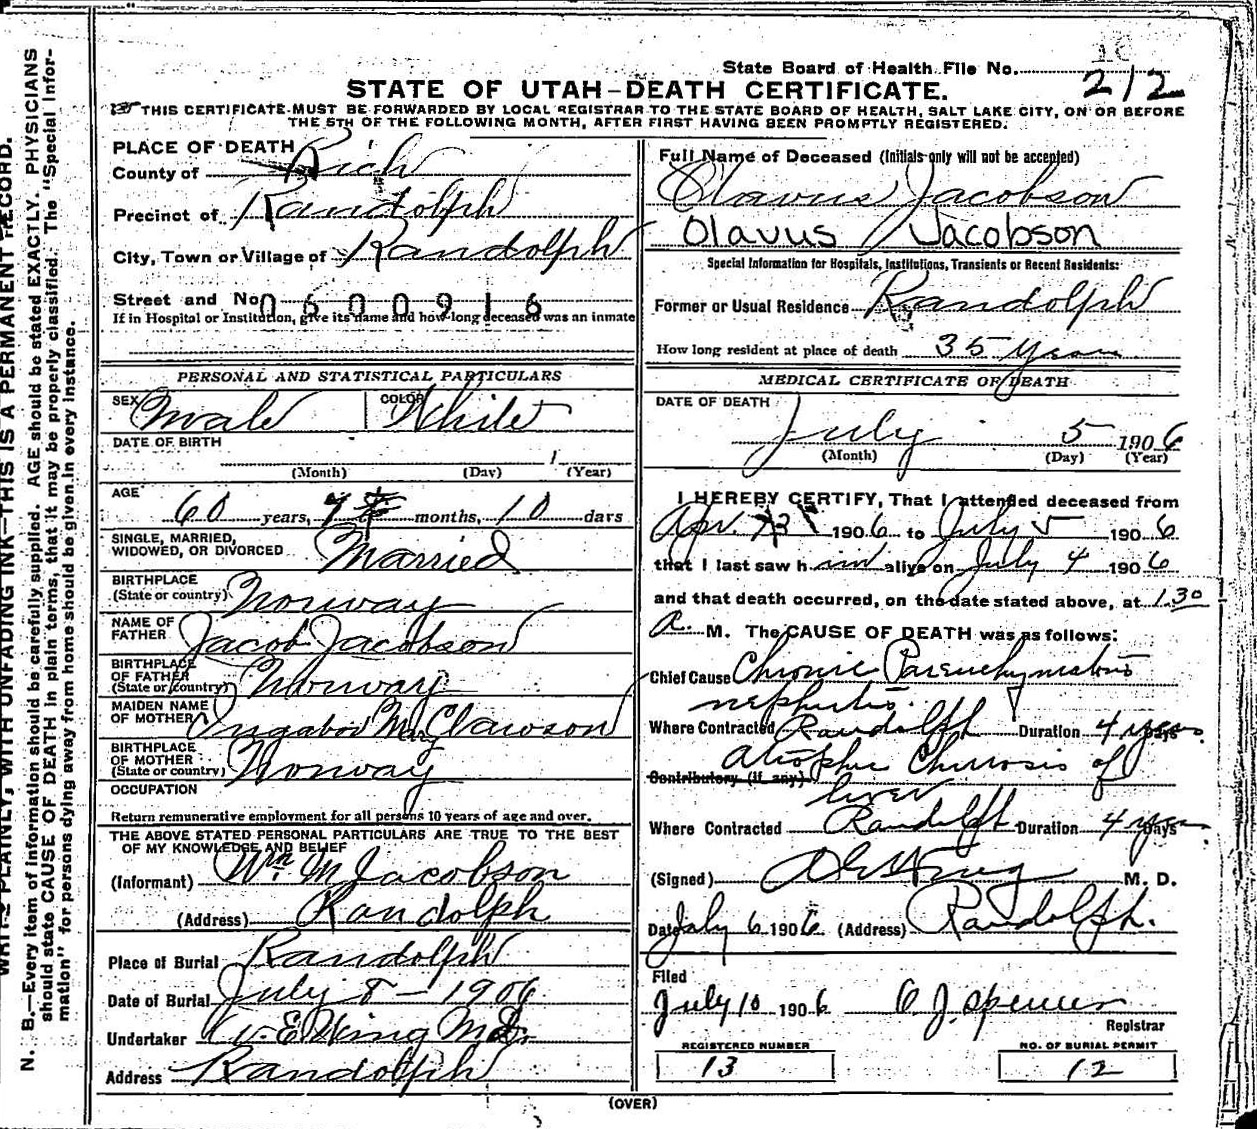 State Board of Health File No. 212
STATE OF UTAH-DEATH CERTIFICATE.
THIS CERTIFICATE MUST BE FORWARDED BY LOCAL REGISTRAR TO THE STATE BOARD OF HEALTH, SALT LAKE CITY, ON OR BEFORE
THE 5TH OF THE FOLLOWING MONTH, AFTER FIRST HAVING BEEN PROMPTLY REGISTERED.
PLACE OF DEATH
County of Rich
Precinct of Randolph
City, Town or Village of Randolph
Street and No. 0600916
If in Hospital or Institution, give its name and how long deceased was an inmate
PERSONAL AND STATISTICAL PARTICULARS
SEX Male COLOR White
DATE OF BIRTH
(Month) (Day) 1 (Year)
AGE 60 years, months, 10 days
SINGLE, MARRIED,
WIDOWED, OR DIVORCED Married
BIRTHPLACE
(State or country) Norway
NAME OF
FATHER Jacob Jacobson
BIRTHPLACE
OF FATHER
(State or country) Norway
MAIDEN NAME
OF MOTHER Clawson
BIRTHPLACE
OF MOTHER
(State or country) Norway
OCCUPATION
Return remunerative employment for all persons 10 years of age and over.
THE ABOVE STATED PERSONAL PARTICULARS ARE TRUE TO THE BEST
OF MY KNOWLEDGE AND BELIEF
(Informant) Wm M Jacobson
(Address) Randolph
Place of Burial Randolph
Date of Burial July 8 - 1906
Undertaker W. E. Wing M.D.
Address Randolph
Full Name of Deceased (Initials only will not be accepted)
Olavus Jacobson
Olavus Jacobson
Special Information for Hospitals, Institutions, Transients or Recent Residents:
Former or Usual Residence Randolph
How long resident at place of death 35 years
MEDICAL CERTIFICATE OF DEATH
DATE OF DEATH
July 5 1906
(Month) (Day) (Year)
I HEREBY CERTIFY, That I attended deceased from
Apr. 1906 to July 5 1906
that I last saw him alive on July 4 1906
and that death occurred, on the date stated above, at 1.30
A. M. The CAUSE OF DEATH was as follows:
Chief Cause Chronic Parenchymatous
nephritis.
Where Contracted Randolph Duration 4 years Days
Atrophic Chirrosis of
Contributory (if any)
liver
Where Contracted Randolph Duration 4 years Days
(Signed) Wing M. D.
Date July 6 1906 (Address) Randolph.
Filed
July 10 1906 O. J. Spencer
Registrar
REGISTERED NUMBER NO. OF BURIAL PERMIT
13 12
(OVER)
WRITE PLAINLY, WITH UNFADING INK—THIS IS A PERMANENT RECORD.
N. B.—Every item of information should be carefully supplied. AGE should be stated EXACTLY. PHYSICIANS
should state CAUSE OF DEATH in plain terms, that it may be properly classified. The "Special Infor-
mation" for persons dying away from home should be given in every instance.